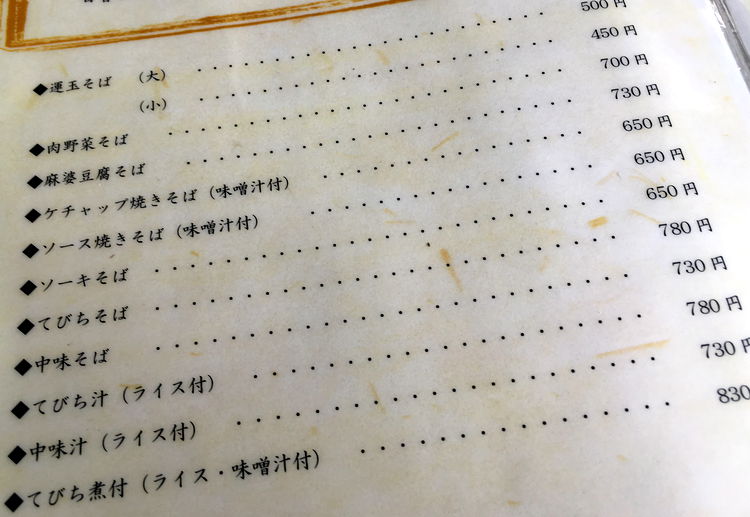 ◆運玉そば （大） ・・・・・・・・・・・・・・・・・・・・ 500 円
（小） ・・・・・・・・・・・・・・・・・・・・ 450 円
◆肉野菜そば ・・・・・・・・・・・・・・・・・・・・・ 700 円
◆麻婆豆腐そば ・・・・・・・・・・・・・・・・・・・・ 730 円
◆ケチャップ焼きそば（味噌汁付） ・・・・・・・・・・・・・ 650 円
◆ソース焼きそば（味噌汁付） ・・・・・・・・・・・・・・ 650 円
◆ソーキそば ・・・・・・・・・・・・・・・・・・・・・ 650 円
◆てびちそば ・・・・・・・・・・・・・・・・・・・・・ 780 円
◆中味そば ・・・・・・・・・・・・・・・・・・・・・ 730 円
◆てびち汁（ライス付） ・・・・・・・・・・・・・・・・・ 780 円
◆中味汁（ライス付） ・・・・・・・・・・・・・・・・・・ 730 円
◆てびち煮付（ライス・味噌汁付） ・・・・・・・・・・・・・ 830